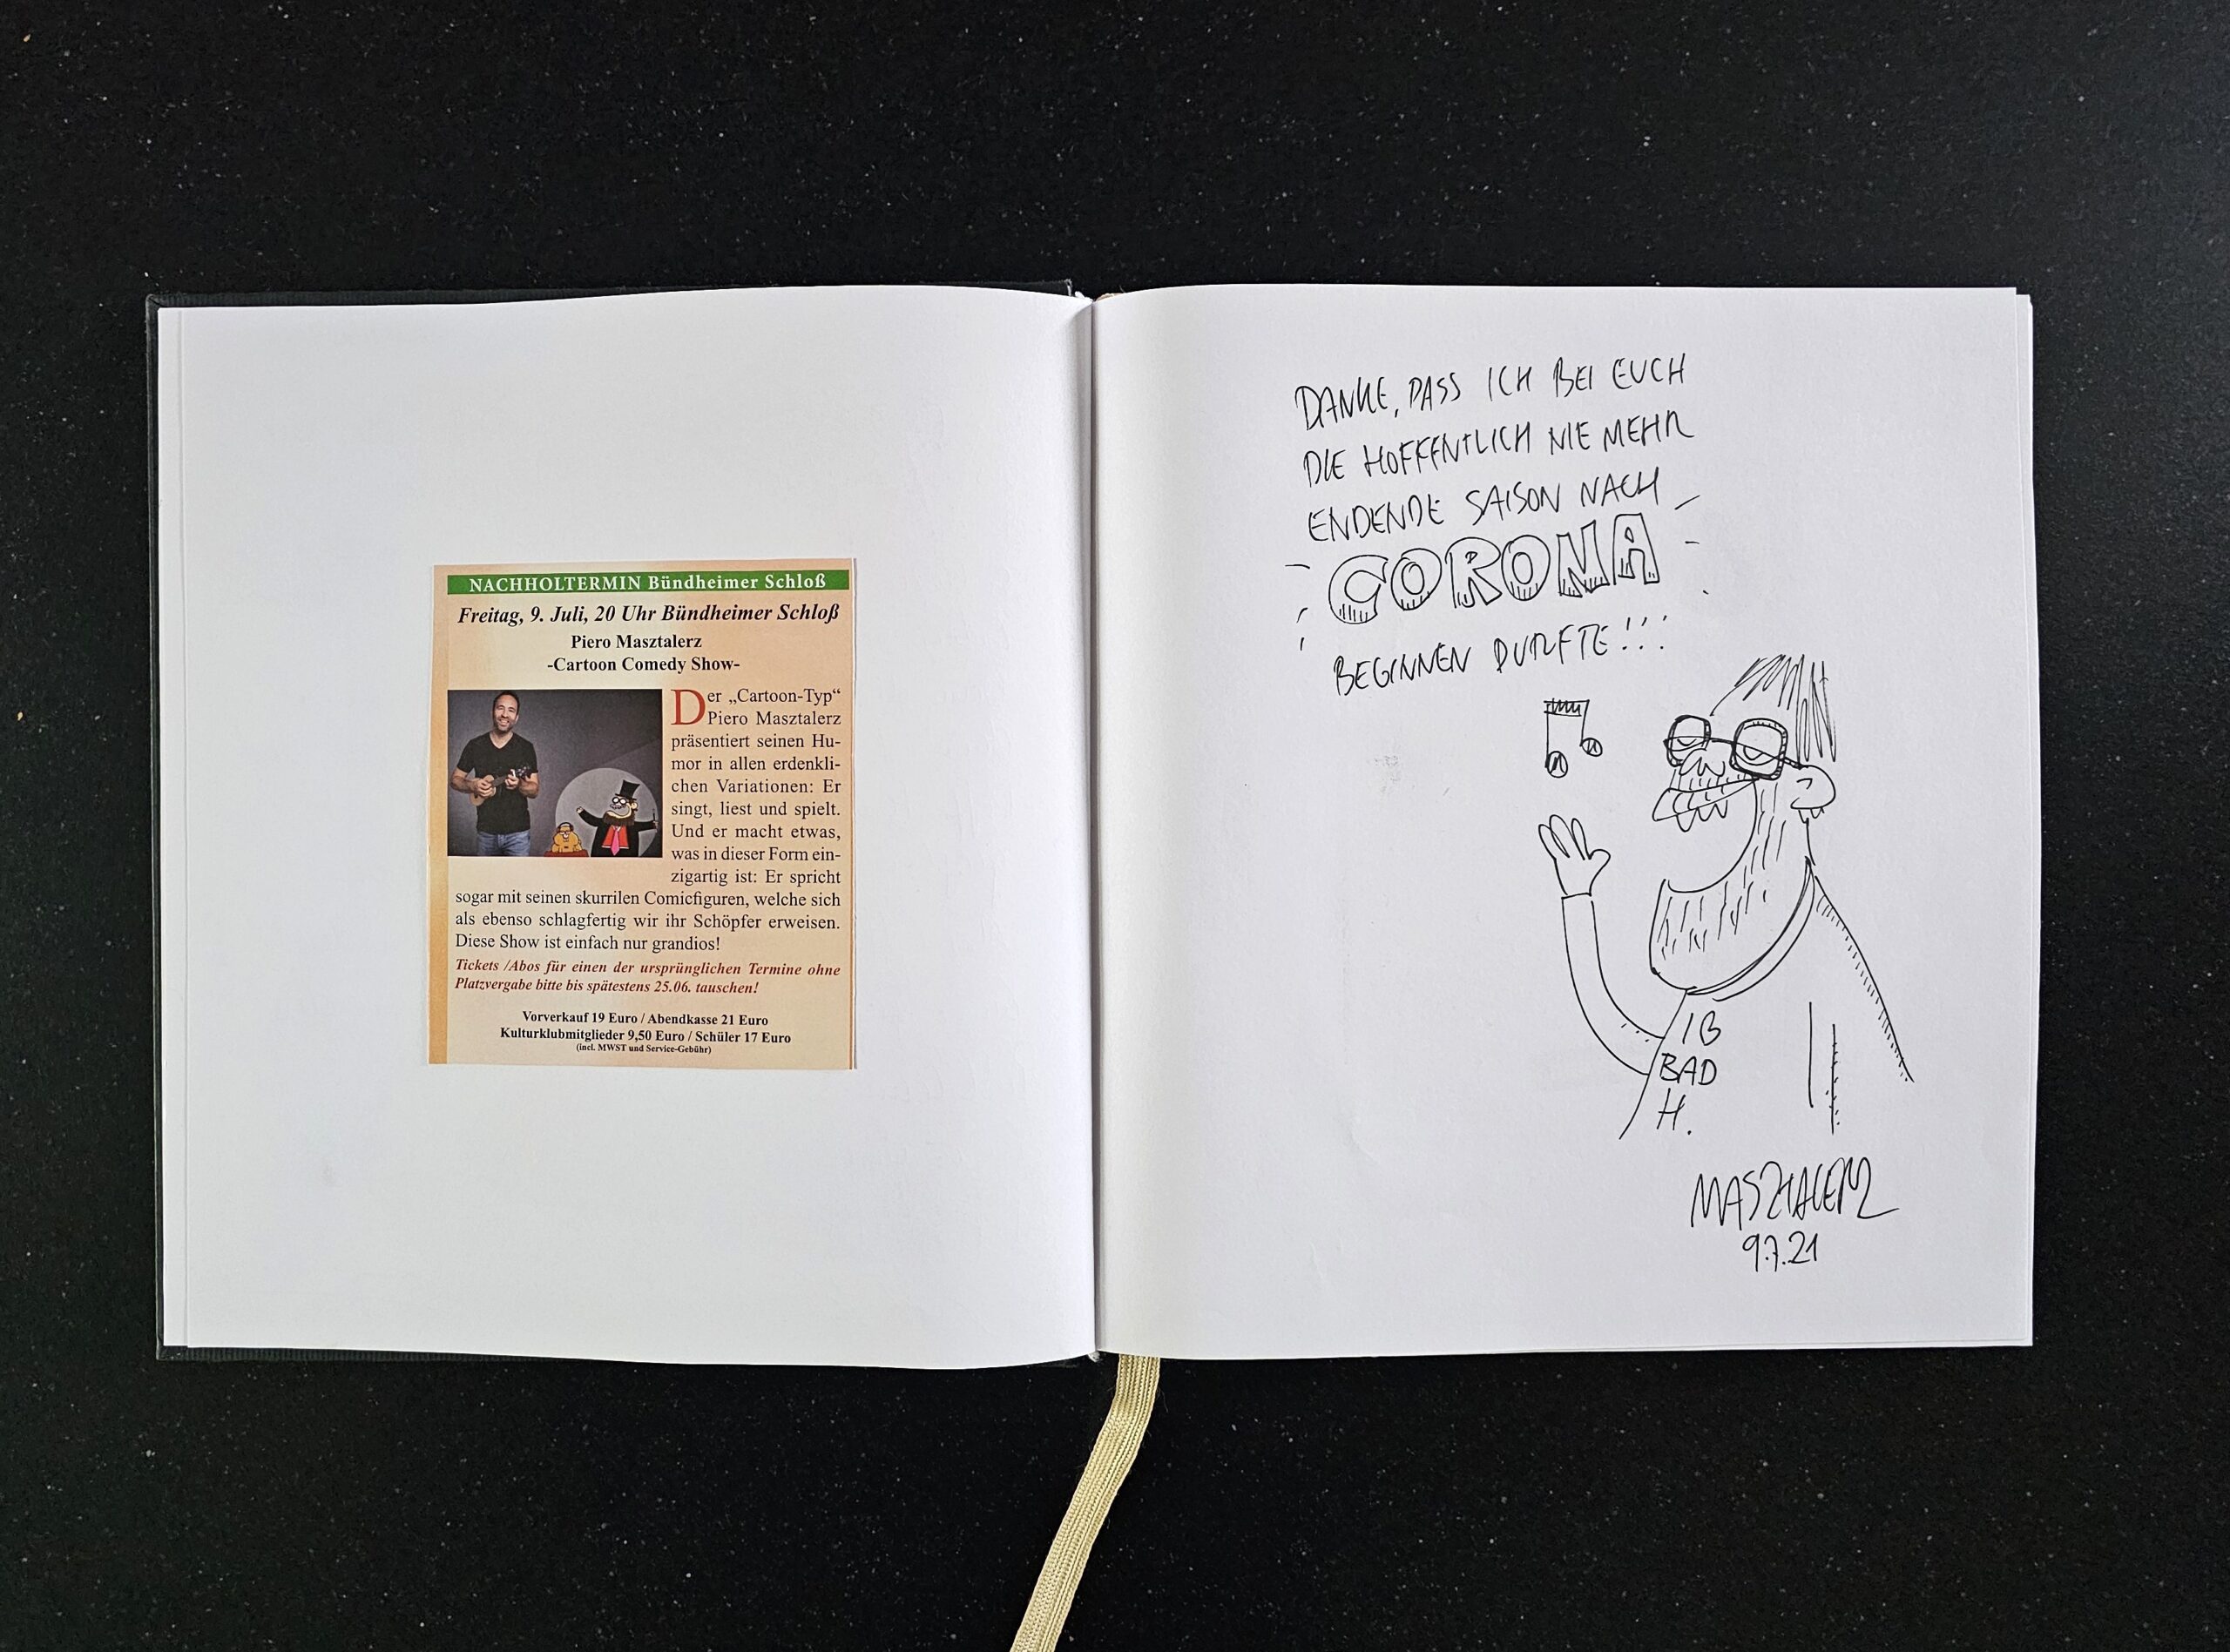 NACHHOLTERMIN Bündheimer Schloß
Freitag, 9. Juli, 20 Uhr Bündheimer Schloß
Piero Masztalerz
-Cartoon Comedy Show-
Der „Cartoon-Typ“
Piero Masztalerz
präsentiert seinen Hu-
mor in allen erdenkli-
chen Variationen: Er
singt, liest und spielt.
Und er macht etwas,
was in dieser Form ein-
zigartig ist: Er spricht
sogar mit seinen skurrilen Comicfiguren, welche sich
als ebenso schlagfertig wir ihr Schöpfer erweisen.
Diese Show ist einfach nur grandios!
Tickets /Abos für einen der ursprünglichen Termine ohne
Platzvergabe bitte bis spätestens 25.06. tauschen!
Vorverkauf 19 Euro / Abendkasse 21 Euro
Kulturklubmitglieder 9,50 Euro / Schüler 17 Euro
(incl. MWST und Service-Gebühr)
DANKE, DASS ICH BEI EUCH
DIE HOFFENTLICH NIE MEHR
ENDENDE SAISON NACH
CORONA
BEGINNEN DURFTE!!!
BAD
H.
MASZTALERZ
9.7.21